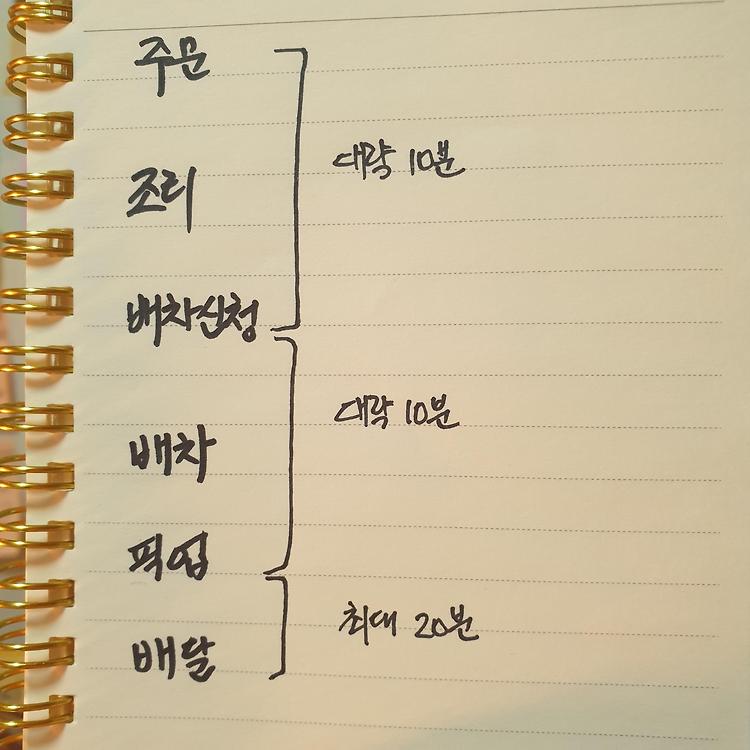 주문
대략 10분
조리
배차신청
대략 10분
배차
픽업
최대 20분
배달